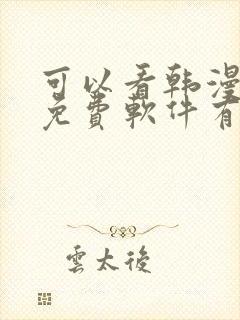 可以看韩漫
免費軟件有
雲太後